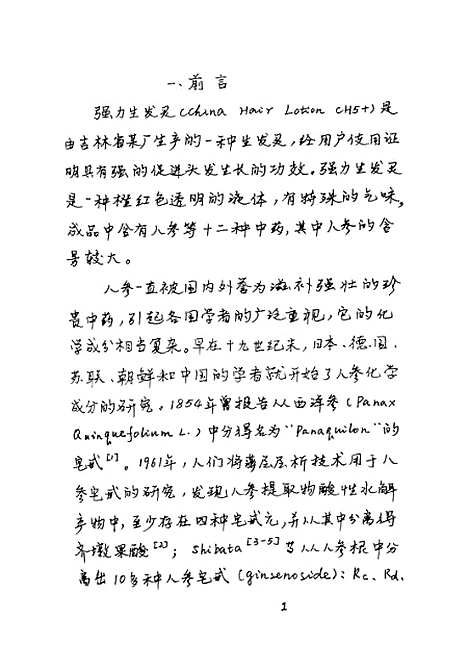 一、前言
强力生发灵(China Hair Lotion CH5+)是
由吉林省某厂生产的一种生发灵,经用户使用证
明具有强的促进头发生长的功效。强力生发灵
是一种橙红色透明的液体,有特殊的气味,
成品中含有人参等十二种中药,其中人参的含
量较大。
人参一直被国内外誉为滋补强壮的珍
贵中药,引起各国学者的广泛重视,它的化
学成分相当复杂。早在十九世纪末,日本、德国、
苏联、朝鲜和中国的学者就开始了人参化学
成分的研究。1854年曾报告从西洋参(Panax
Quinquefolium L.)中分得名为“Panaquilon”的
皂甙[1]。1961年,人们将薄层层析技术用于人
参皂甙的研究,发现人参提取物酸性水解
产物中,至少存在四种皂甙元,并从其中分离得
齐墩果酸[2];Shibata[3-5]等从人参根中分
离出10多种人参皂甙(ginsenoside):Rc、Rd、
1